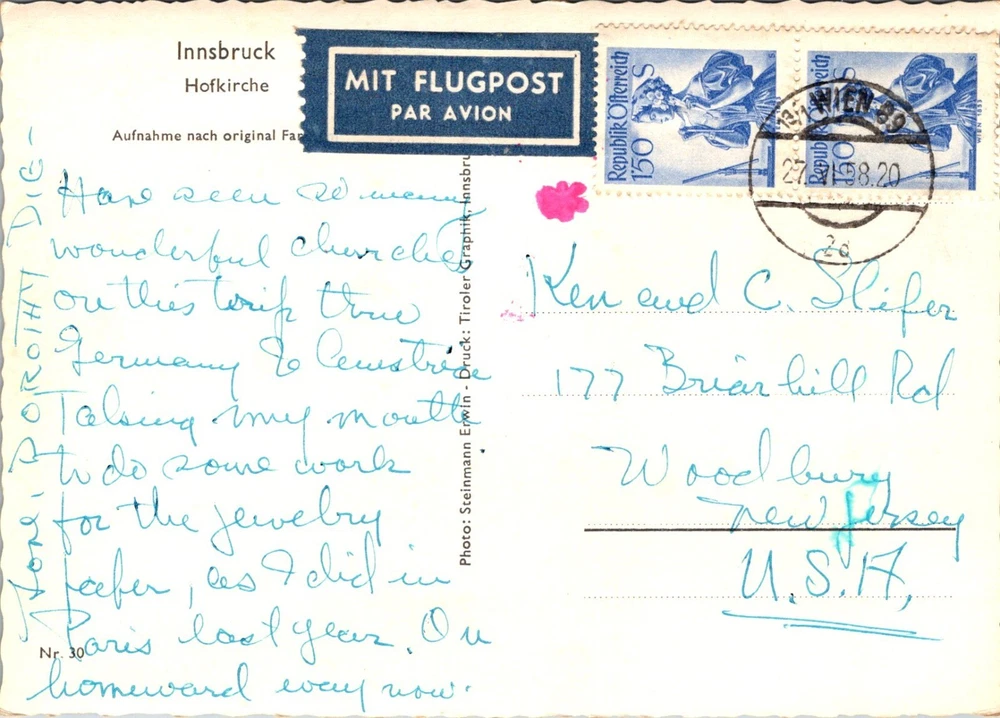 Innsbruck
Hofkirche
Aufnahme nach original Far
MIT FLUGPOST
PAR AVION
Republik Österreich
1'50 S
Republik
S
WIEN 89
27. 58.20
2d
Have seen so many
wonderful churches
on this trip thru
Germany & Austria
Taking my mouth
to do some work
for the jewelry
paper, as I did in
Paris last year. On
homeward way now.
Love, DOROTHY DIG-
Photo: Steinmann Erwin - Druck: Tiroler Graphik, Innsbru
Ken and C. Slifer
177 Briar hill Rd
Woodbury
New Jersey
U.S.A,
Nr. 30